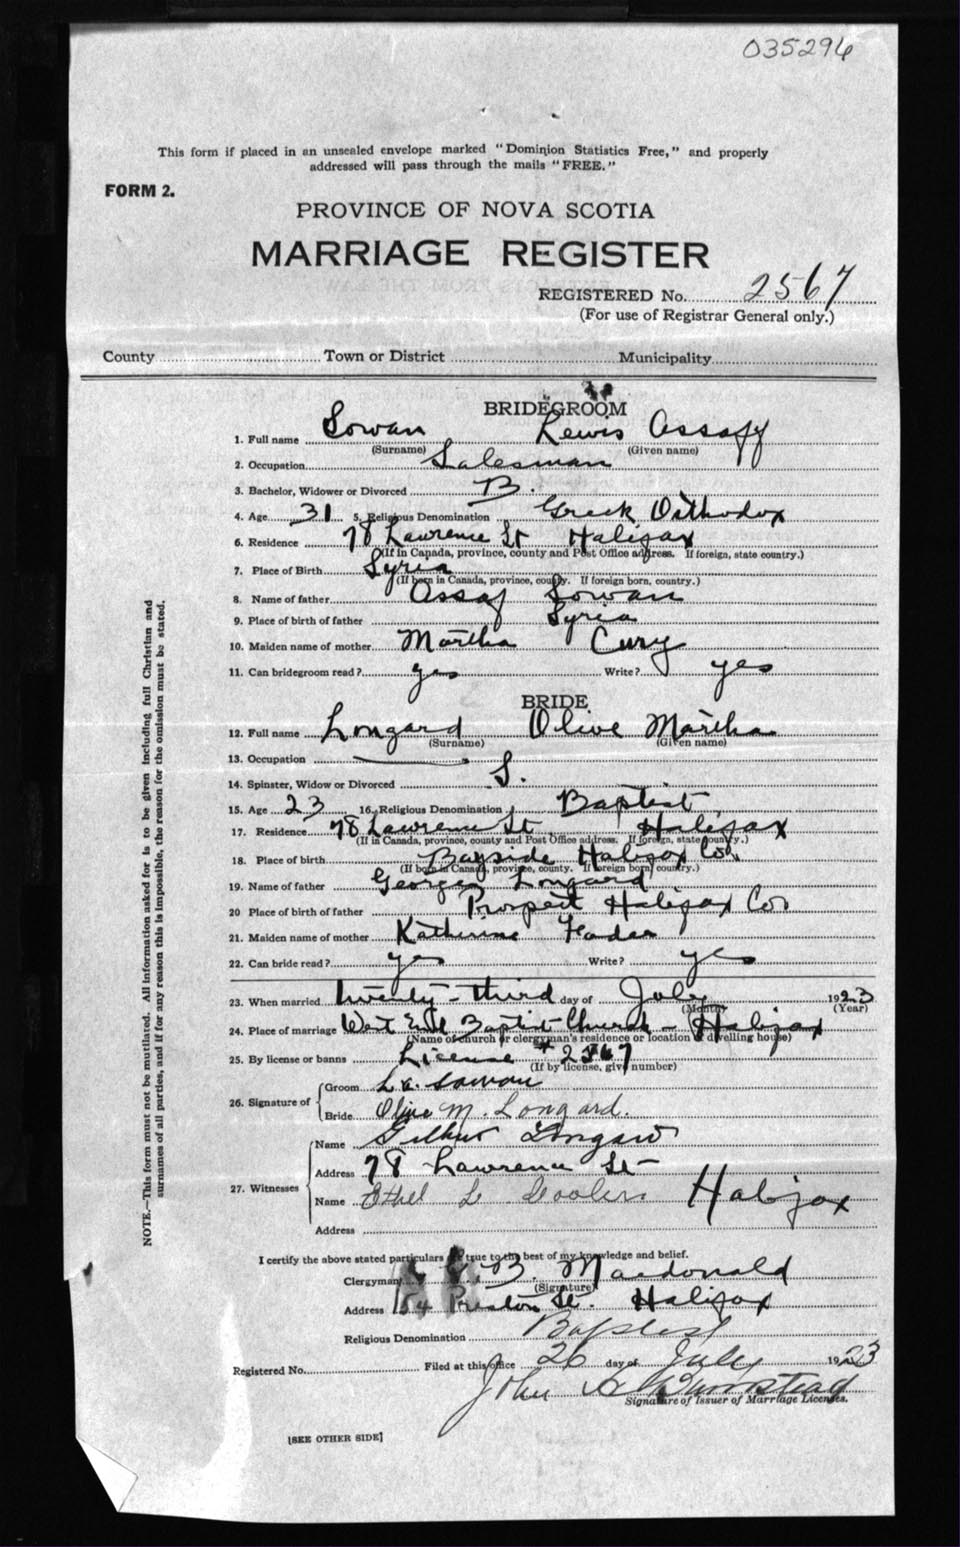 035296
This form if placed in an unsealed envelope marked "Dominion Statistics Free," and properly
addressed will pass through the mails "FREE."
FORM 2.
PROVINCE OF NOVA SCOTIA
MARRIAGE REGISTER
REGISTERED No. 2567
(For use of Registrar General only.)
County Town or District Municipality
BRIDEGROOM
1. Full name Sowan Lewis Assaff
(Surname) (Given name)
2. Occupation Salesman
3. Bachelor, Widower or Divorced B.
4. Age 31 5. Religious Denomination Greek Orthodox
6. Residence 78 Lawrence St Halifax
(If in Canada, province, county and Post Office address. If foreign, state country.)
7. Place of Birth Syria
(If born in Canada, province, county. If foreign born, country.)
8. Name of father Assaf Sowan
9. Place of birth of father Syria
10. Maiden name of mother Martha Cury
11. Can bridegroom read? yes Write? yes
BRIDE
12. Full name Longard Olive Martha
(Surname) (Given name)
13. Occupation
14. Spinster, Widow or Divorced S.
15. Age 23 16. Religious Denomination Baptist
17. Residence 78 Lawrence St Halifax
(If in Canada, province, county and Post Office address. If foreign, state country.)
18. Place of birth Bayside Halifax Co
(If born in Canada, province, county. If foreign born, country.)
19. Name of father George Longard
20 Place of birth of father Prospect Halifax Co
21. Maiden name of mother Katherine Fader
22. Can bride read? yes Write? yes
23. When married twenty-third day of July 1923
(Month) (Year)
24. Place of marriage West End Baptist Church - Halifax
(Name of church or clergyman's residence or location of dwelling house)
25. By license or banns License # 2567
(If by license, give number)
26. Signature of Groom L. A. Sowan
Bride Olive M. Longard.
27. Witnesses Name Longard
Address 78 Lawrence St
Name Ethel L Halifax
Address
I certify the above stated particulars are true to the best of my knowledge and belief.
Clergyman B. Macdonald
(Signature)
Address Preston St. Halifax
Religious Denomination Baptist
Registered No. Filed at this office 26 day of July 1923
John
Signature of Issuer of Marriage Licenses.
[SEE OTHER SIDE]
NOTE.—This form must not be mutilated. All information asked for is to be given including full Christian and
surnames of all parties, and if for any reason this is impossible, the reason for the omission must be stated.